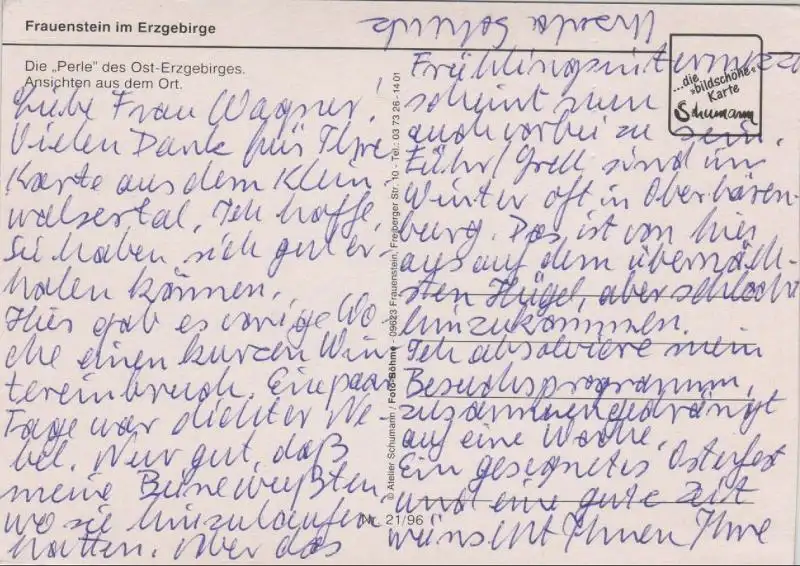 Frauenstein im Erzgebirge
Die „Perle" des Ost-Erzgebirges.
Ansichten aus dem Ort.
...die
»bildschöne«
Karte
Schumann
Liebe Frau Wagner!
Vielen Dank für Ihre
Karte aus dem Klein
walsertal. Ich hoffe,
Sie haben sich gut er-
holen können.
Hier gab es vorige Wo-
che einen kurzen Win
tereinbruch. Ein paar
Tage war dichter Ne-
bel. Nur gut, daß
meine Beine wußten,
wo sie hinzulaufen
hatten. Aber das
© Atelier Schumann / Foto-Böhme - 09623 Frauenstein, Freiberger Str. 10 - Tel.: 03 73 26 - 14 01
Nr. 21/96
Frühlingsintermezzo
scheint nun
auch vorbei zu sein.
sind im
Winter oft in Oberbären-
burg. Das ist von hier
aus auf dem übernäch-
sten Hügel, aber schlecht
hinzukommen.
Ich absolviere mein
Besuchsprogramm,
zusammengedrängt
auf eine Woche.
Ein gesegnetes Osterfest
und eine gute Zeit
wünscht Ihnen Ihre
Ursula